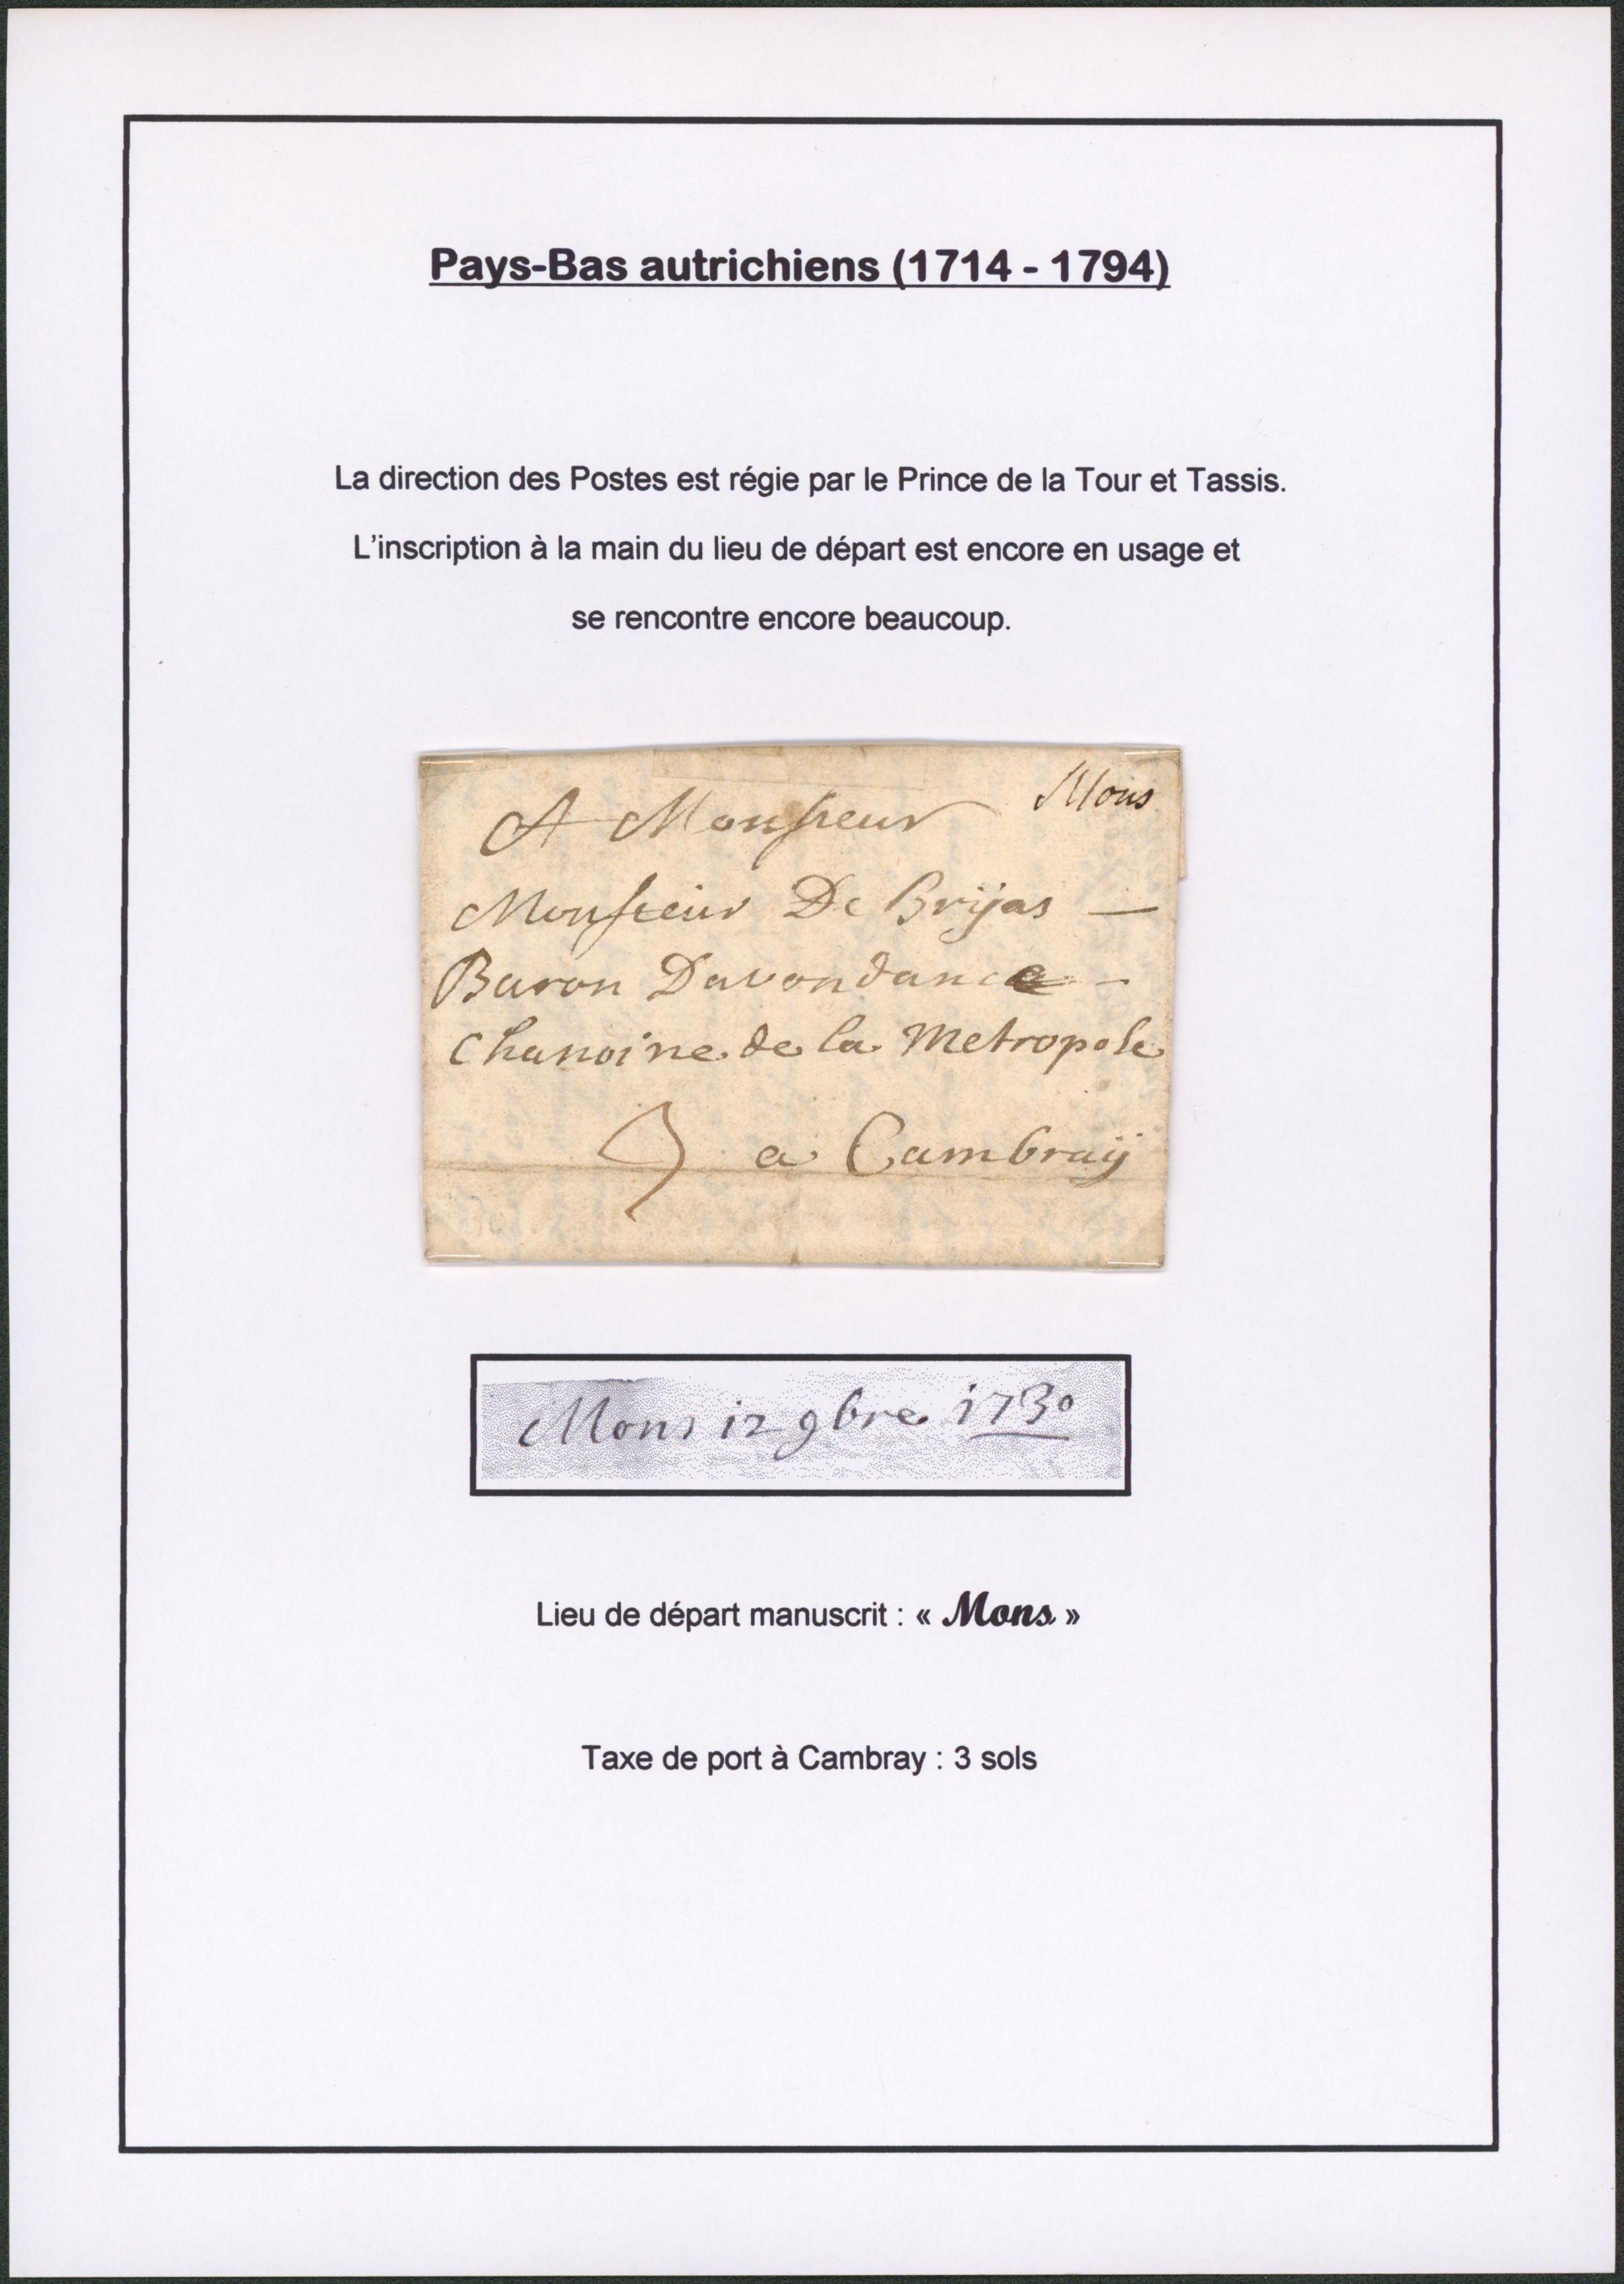 Pays-Bas autrichiens (1714 - 1794)
La direction des Postes est régie par le Prince de la Tour et Tassis.
L'inscription à la main du lieu de départ est encore en usage et
se rencontre encore beaucoup.
Mons
A Monsieur
Monsieur De Brÿas —
Baron Davondance -
Chanoine de la Metropole
3 a Cambraÿ
Mons 12 9bre 1730
Lieu de départ manuscrit : « Mons »
Taxe de port à Cambray : 3 sols